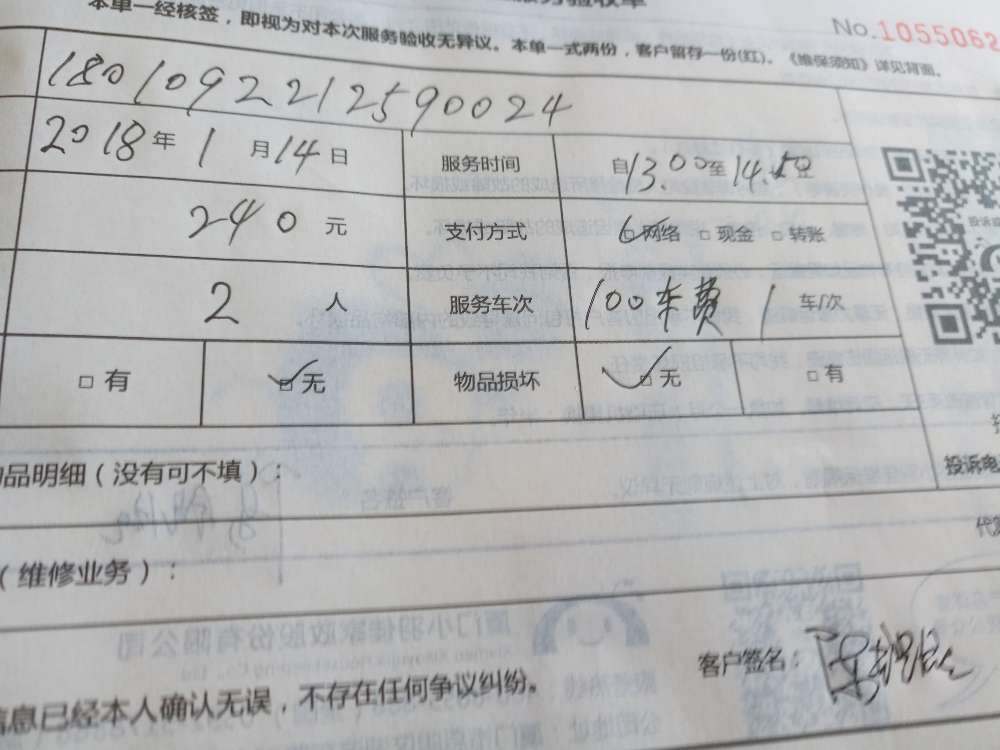 No.1055062
本单一经核签，即视为对本次服务验收无异议。本单一式两份，客户留存一份(红)。《维保须知》详见背面。
1801092212590024
2018年1月14日 服务时间 自13.00至14.50
240元 支付方式 ☑网络 □现金 □转账
2人 服务车次 100车费 1车/次
□有 ☑无 物品损坏 ☑无 □有
品明细（没有可不填）：
投诉电
（维修业务）：
客户签名：
信息已经本人确认无误，不存在任何争议纠纷。